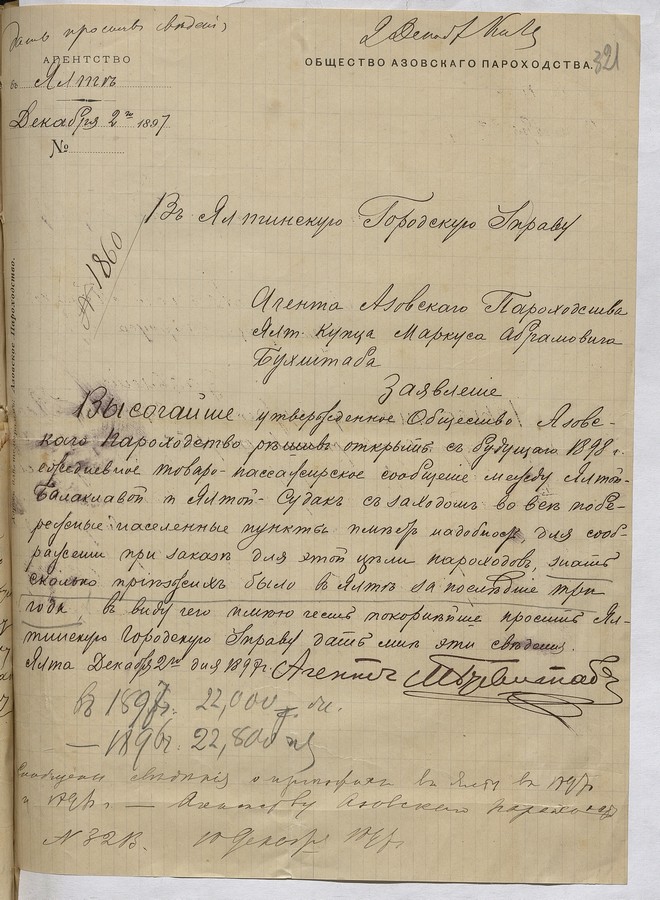 Дать просимыя свѣдѣнія
2 Декабр
321
АГЕНТСТВО
ОБЩЕСТВО АЗОВСКАГО ПАРОХОДСТВА.
въ Ялтѣ
Декабря 2го 1897
№
Въ Ялтинскую Городскую Управу
№ 1860
Агента Азовскаго Пароходства
Ялт. Купца Маркуса Абрамовича
Бухштаба
Заявленіе
Высочайше утвержденное Общество Азов-
скаго Пароходство рѣшивъ открыть съ будущаго 1898 г.
ежедневное товаро-пассажирское сообщеніе между Ялтой-
Балаклавой и Ялтой-Судакъ съ заходомъ во всѣ побе-
режные населенные пункты имѣетъ надобность для сооб-
раженія при заказѣ для этой цѣли пароходовъ, знать
сколько пріѣзжихъ было въ Ялтѣ за послѣдніе три
года въ виду чего имѣю честь покорнѣйше просить Ял-
тинскую Городскую Управу дать мнѣ эти свѣдѣнія.
Ялта Декабря 2го дня 1897 г. Агентъ М Бухштабъ
Азовское Пароходство.
В 1897г. 22,000 ч.
— 1896г. 22,800
Сообщены свѣдѣнія о пріѣзжихъ въ Ялту въ 1897
и 1896 г — Агентству Азовскаго Пароход
N 3213. 10 Декабря 1897г.